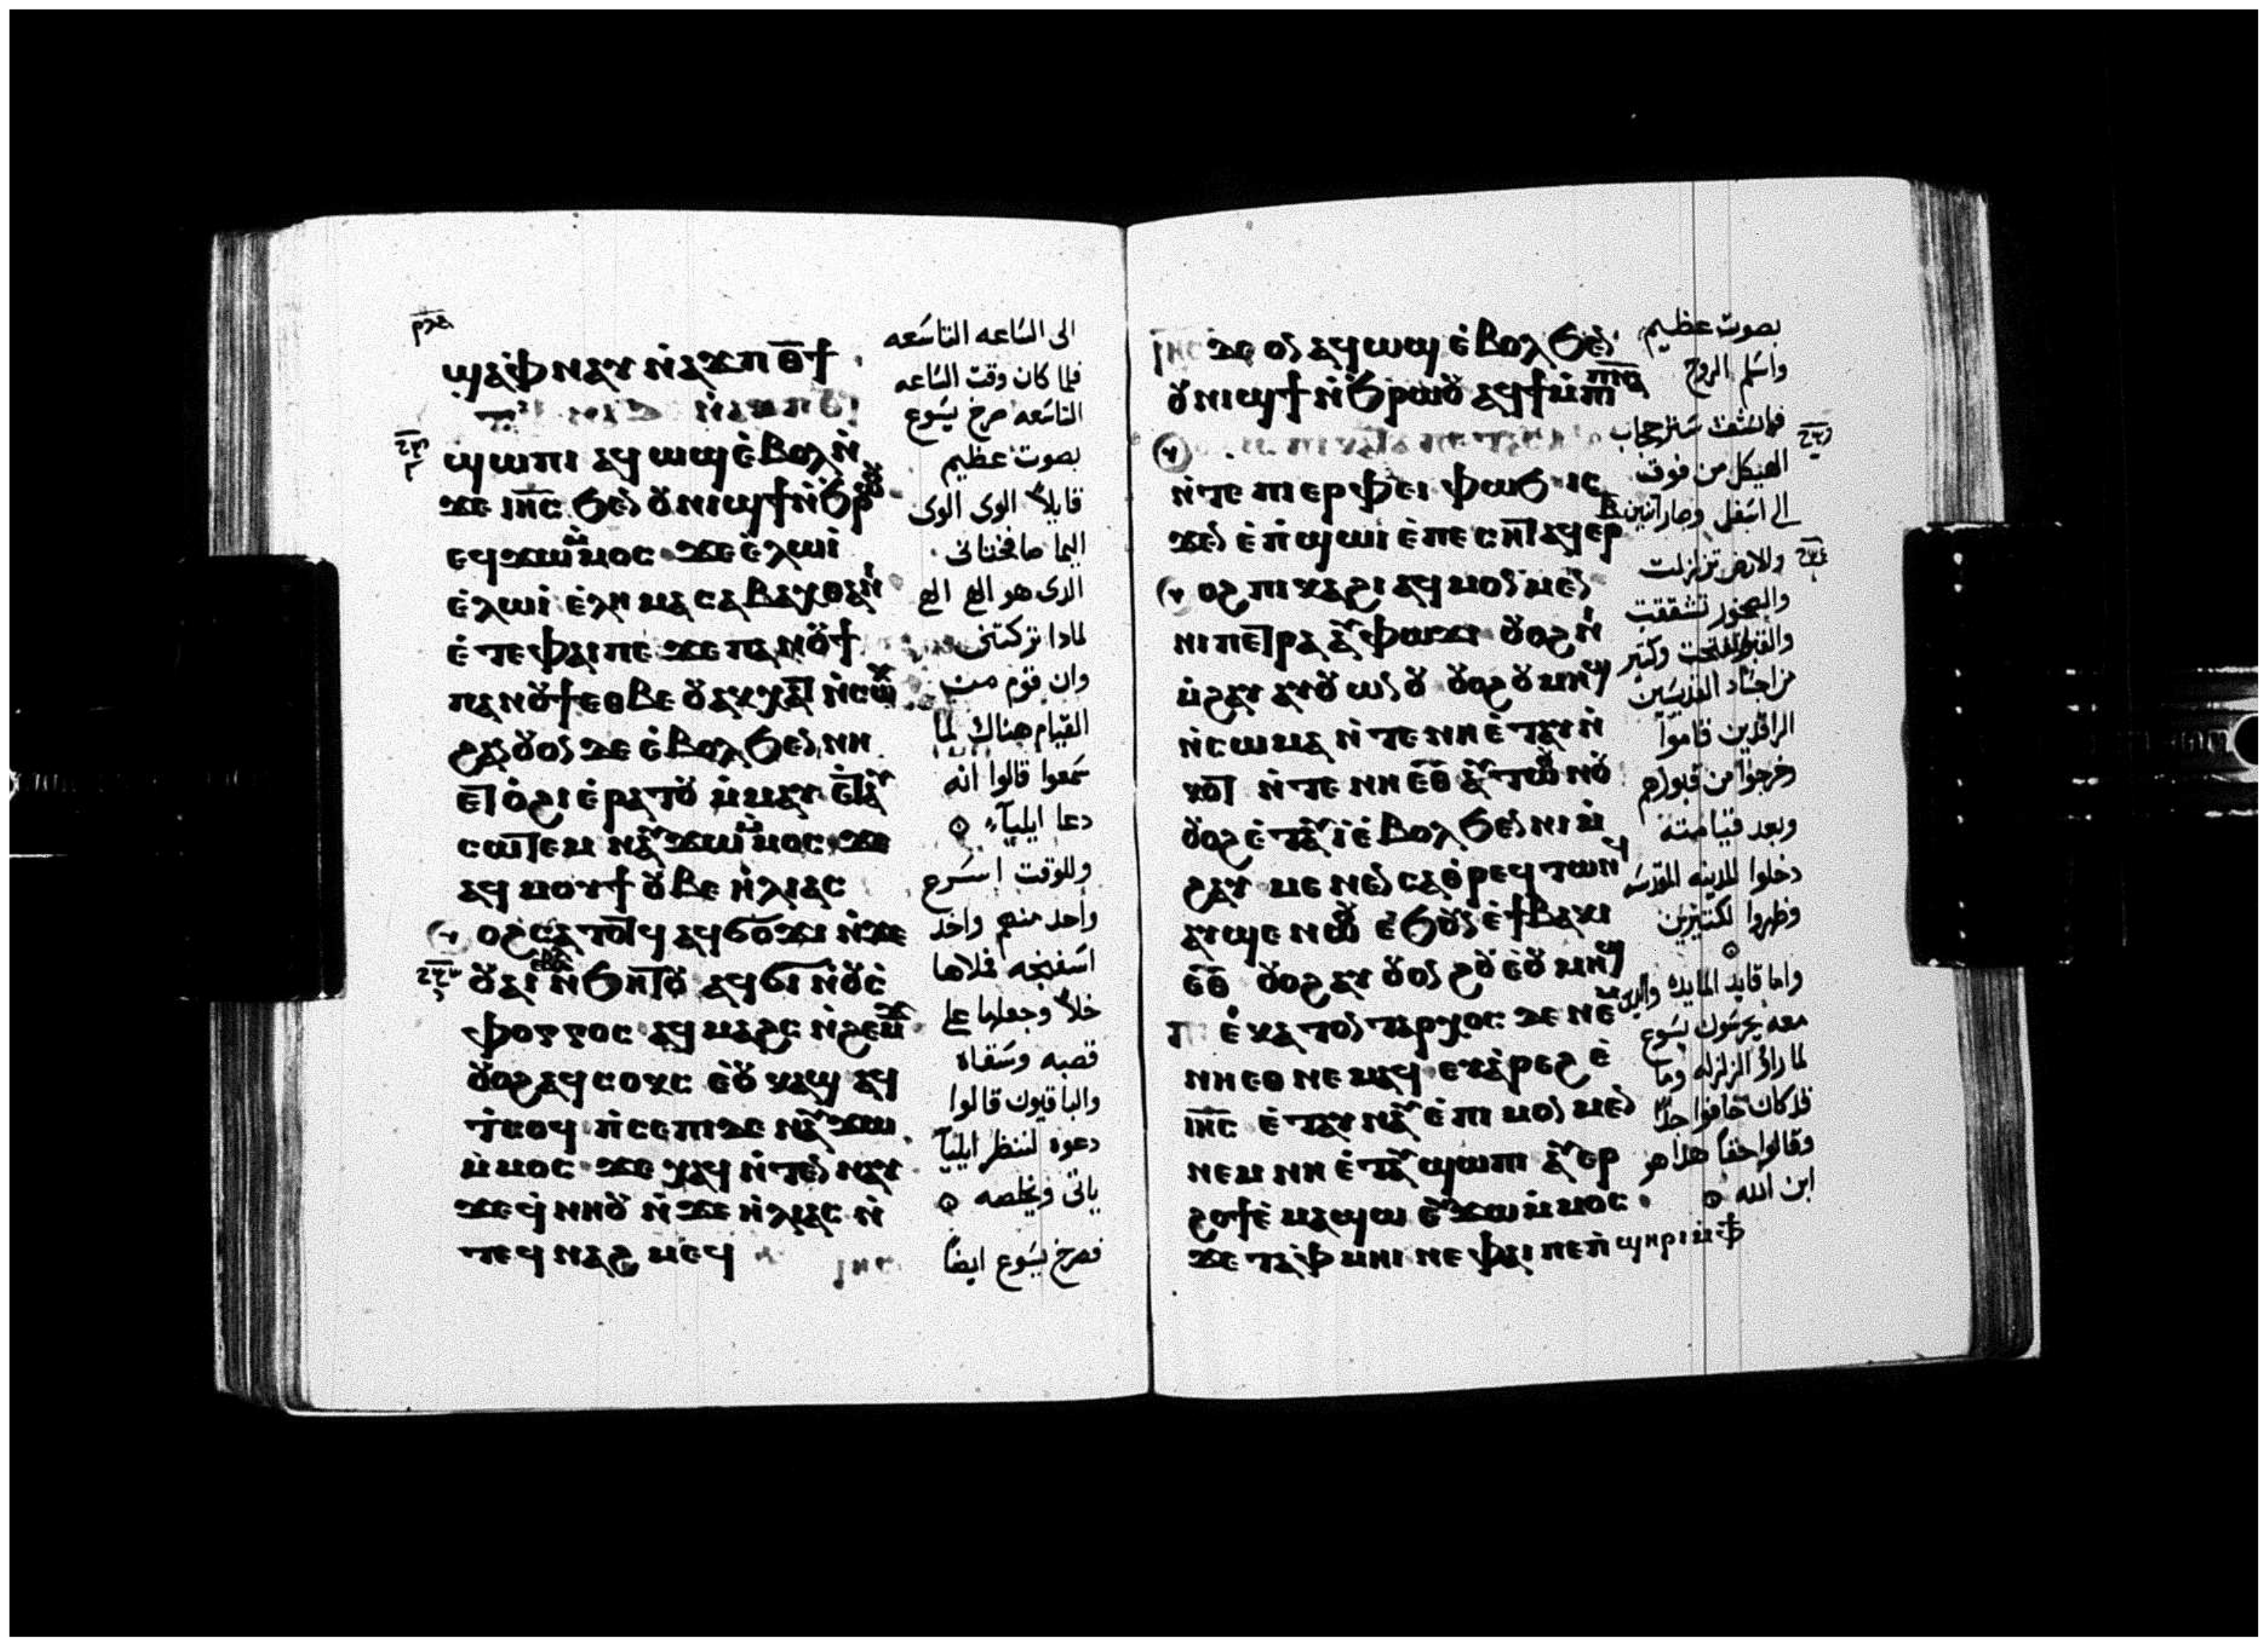 ϣⲁ ⲫⲛⲁⲩ ⲛ̀ⲁϫⲡ ⲑ̅ϯ
ϣⲱⲡⲓ ⲁϥⲱϣ ⲉ̀ⲃⲟⲗ ⲛ̀
ϫⲉ ⲓⲏ̅ⲥ̅ ϧⲉⲛ ⲟⲩⲛⲓϣϯ ⲛ̀ϧⲣⲱⲟⲩ
ⲉϥϫⲱ ⲙ̀ⲙⲟⲥ ϫⲉ ⲉ̀ⲗⲱⲓ
ⲉ̀ⲗⲱⲓ ⲉ̀ⲗⲏⲙⲁ ⲥⲁⲃⲁⲭⲑⲁⲛⲓ
ⲉ̀ⲧⲉ ⲫⲁⲓ ⲡⲉ ϫⲉ ⲡⲁⲛⲟⲩϯ
ⲡⲁⲛⲟⲩϯ ⲉⲑⲃⲉ ⲟⲩ ⲁⲕⲭⲁⲧ ⲛ̀ⲥⲱⲕ
ϩⲁⲛⲟⲩⲟⲛ ⲇⲉ ⲉ̀ⲃⲟⲗ ϧⲉⲛ ⲛⲏ
ⲉⲧⲟ̀ϩⲓ ⲉ̀ⲣⲁⲧⲟⲩ ⲙ̀ⲙⲁⲩ ⲉ̀ⲧⲁⲩ
ⲥⲱⲧⲉⲙ ⲛⲁⲩϫⲱ ⲙ̀ⲙⲟⲥ ϫⲉ
ⲁϥⲙⲟⲩϯ ⲟⲩⲃⲉ ⲏ̀ⲗⲓⲁⲥ
ⲟⲩⲟϩ ⲥⲁⲧⲟⲧϥ ⲁϥϭⲟϫⲓ ⲛ̀ϫⲉ
ⲟⲩⲁⲓ ⲉ̀ⲃⲟⲗ ⲛ̀ϧⲏⲧⲟⲩ ⲁϥϭⲓ ⲛ̀ⲟⲩⲥ̀
ⲫⲟⲅⲅⲟⲥ ⲁϥⲙⲁϩⲥ ⲛ̀ϩⲉⲙϫ
ⲟⲩⲟϩ ⲁϥⲥⲟⲕⲥ ⲉ̀ⲟⲩⲕⲁϣ ⲁϥ
ⲧ̀ⲥⲟϥ ⲡ̀ⲥⲉⲡⲓ ⲇⲉ ⲛⲁⲩϫⲱ
ⲙ̀ⲙⲟⲥ ϫⲉ ⲭⲁϥ ⲛ̀ⲧⲉⲛⲛⲁⲩ
ϫⲉ ϥ̀ⲛⲏⲟⲩ ⲛ̀ϫⲉ ⲏ̀ⲗⲓⲁⲥ ⲛ̀
ⲧⲉϥⲛⲁϩⲙⲉϥ
الى الساعه التاسعه
فلما كان وقت الساعه
التاسعه صرخ يسوع
بصوت عظيم
قايلاً الوى الوى
اليما صافختانى
الذى هو الهى الهى
لماذا تركتنى
وان قوم من
القيام هناك لما
سمعوا قالوا انه
دعا ايلياء
وللوقت اسرع
واحد منهم واخذ
اسفنجه فملاها
خلاً وجعلها على
قصبه وسقاه
والباقيون قالوا
دعوه لننظر ايليا
ياتى ويخلصه
فصرخ يسوع ايضاً
ⲓⲏ̅ⲥ̅ ⲇⲉ ⲟⲛ ⲁϥⲱϣ ⲉ̀ⲃⲟⲗ ϧⲉⲛ
ⲟⲩⲛⲓϣϯ ⲛ̀ϧⲣⲱⲟⲩ ⲁϥϯ ⲙ̀ⲡⲓⲡ̅ⲛ̅ⲁ̅
ⲛ̀ⲧⲉ ⲡⲓⲉⲣⲫⲉⲓ ⲫⲱϧ ⲓⲥ
ϫⲉⲛ ⲉ̀ⲡϣⲱⲓ ⲉ̀ⲡⲉⲥⲏⲧ ⲁϥⲉⲣ ⲃ̅
ⲟⲩⲟϩ ⲡⲓⲕⲁϩⲓ ⲁϥⲙⲟⲛⲙⲉⲛ
ⲛⲓⲡⲉⲧⲣⲁ ⲁⲩⲫⲱϫⲓ ⲟⲩⲟϩ ⲛⲓ
ⲙ̀ϩⲁⲩ ⲁⲩⲟⲩⲱⲛ ⲟⲩⲟϩ ⲟⲩⲙⲏϣ
ⲛ̀ⲥⲱⲙⲁ ⲛ̀ⲧⲉ ⲛⲏ ⲉ̀ⲧⲁⲩⲛ̀
ⲕⲟⲧ ⲛ̀ⲧⲉ ⲛⲏ ⲉ̅ⲑ̅ ⲁⲩⲧⲱⲟⲩⲛⲟⲩ
ⲟⲩⲟϩ ⲉ̀ⲧⲁⲩⲓ̀ ⲉ̀ⲃⲟⲗ ϧⲉⲛ ⲛⲓⲙ̀
ϩⲁⲩ ⲙⲉⲛⲉⲛⲥⲁ ⲑ̀ⲣⲉϥⲧⲱⲛϥ
ⲁⲩϣⲉ ⲛⲱⲟⲩ ⲉ̀ϧⲟⲩⲛ ⲉ̀ϯⲃⲁⲕⲓ
ⲉ̅ⲑ̅ ⲟⲩⲟϩ ⲁⲩⲟⲩⲟⲛϩⲟⲩ ⲉ̀ⲟⲩⲙⲏϣ
ⲡⲓ ⲉ̀ⲕⲁⲧⲟⲛⲧⲁⲣⲭⲟⲥ ⲇⲉ ⲛⲉⲙ
ⲛⲏ ⲉⲑⲛⲉⲙⲁϥ ⲉⲩⲁ̀ⲣⲉϩ ⲉ̀
ⲓⲏ̅ⲥ̅ ⲉ̀ⲧⲁⲩⲛⲁⲩ ⲉ̀ⲡⲓⲙⲟⲛⲙⲉⲛ
ⲛⲉⲙ ⲛⲏ ⲉ̀ⲧⲁⲩϣⲱⲡⲓ ⲁⲩⲉⲣ
ϩⲟϯ ⲉ̀ⲙⲁϣⲱ ⲉⲩϫⲱ ⲙ̀ⲙⲟⲥ
ϫⲉ ⲧⲁⲫⲙⲏⲓ ⲛⲉ ⲫⲁⲓ ⲡⲉ ⲡ̀ϣⲏⲣⲓ ⲙ̀ⲫϯ
بصوت عظيم
واسلم الروح
فانشقت ستر حجاب
الهيكل من فوق
الى اسفل وصار اثنين
والارض تزلزلت
والصخور تشققت
والقبور انفتحت وكثير
من اجساد القديسين
الراقدين قاموا
وخرجوا من قبورهم
وبعد قيامته
دخلوا المدينه المقدسه
وظهروا لكثيرين
واما قايد المايه والذين
معه يحرسون يسوع
لما راوا الزلزله وما
قد كان خافوا جداً
وقالوا حقاً هذا هو
ابن الله